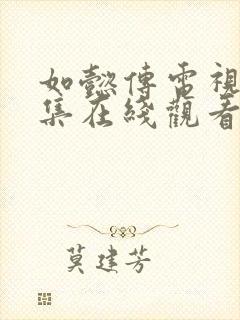 如懿傳電視
集在綫觀看
莫建芳